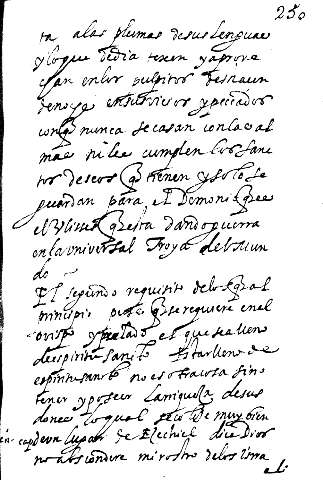 250
ta a las plumas de sus lenguas
y lo que de dia texen y aprove
chan en los pulpitos des
de noche en sus vicios y peccados
con q nunca se casan con las al
mas ni le cumplen los sanc
tos deseos q tienen y solo se
guardan para el Demonio q es
el Ulisses q esta dando guerra
en la universal Troya del Mun
do
El segundo requisito de los q al
principio puse q se requiere en el
obispo y prelado es que sea lleno
de espiritu sancto estar lleno de
espiritu sancto no es otra cosa sino
tener y posseer la riqueza de sus
dones lo qual se lo de muy bien
en cap de un lugar de Ezechiel dice Dios
no absconderé mi rostro de los
el